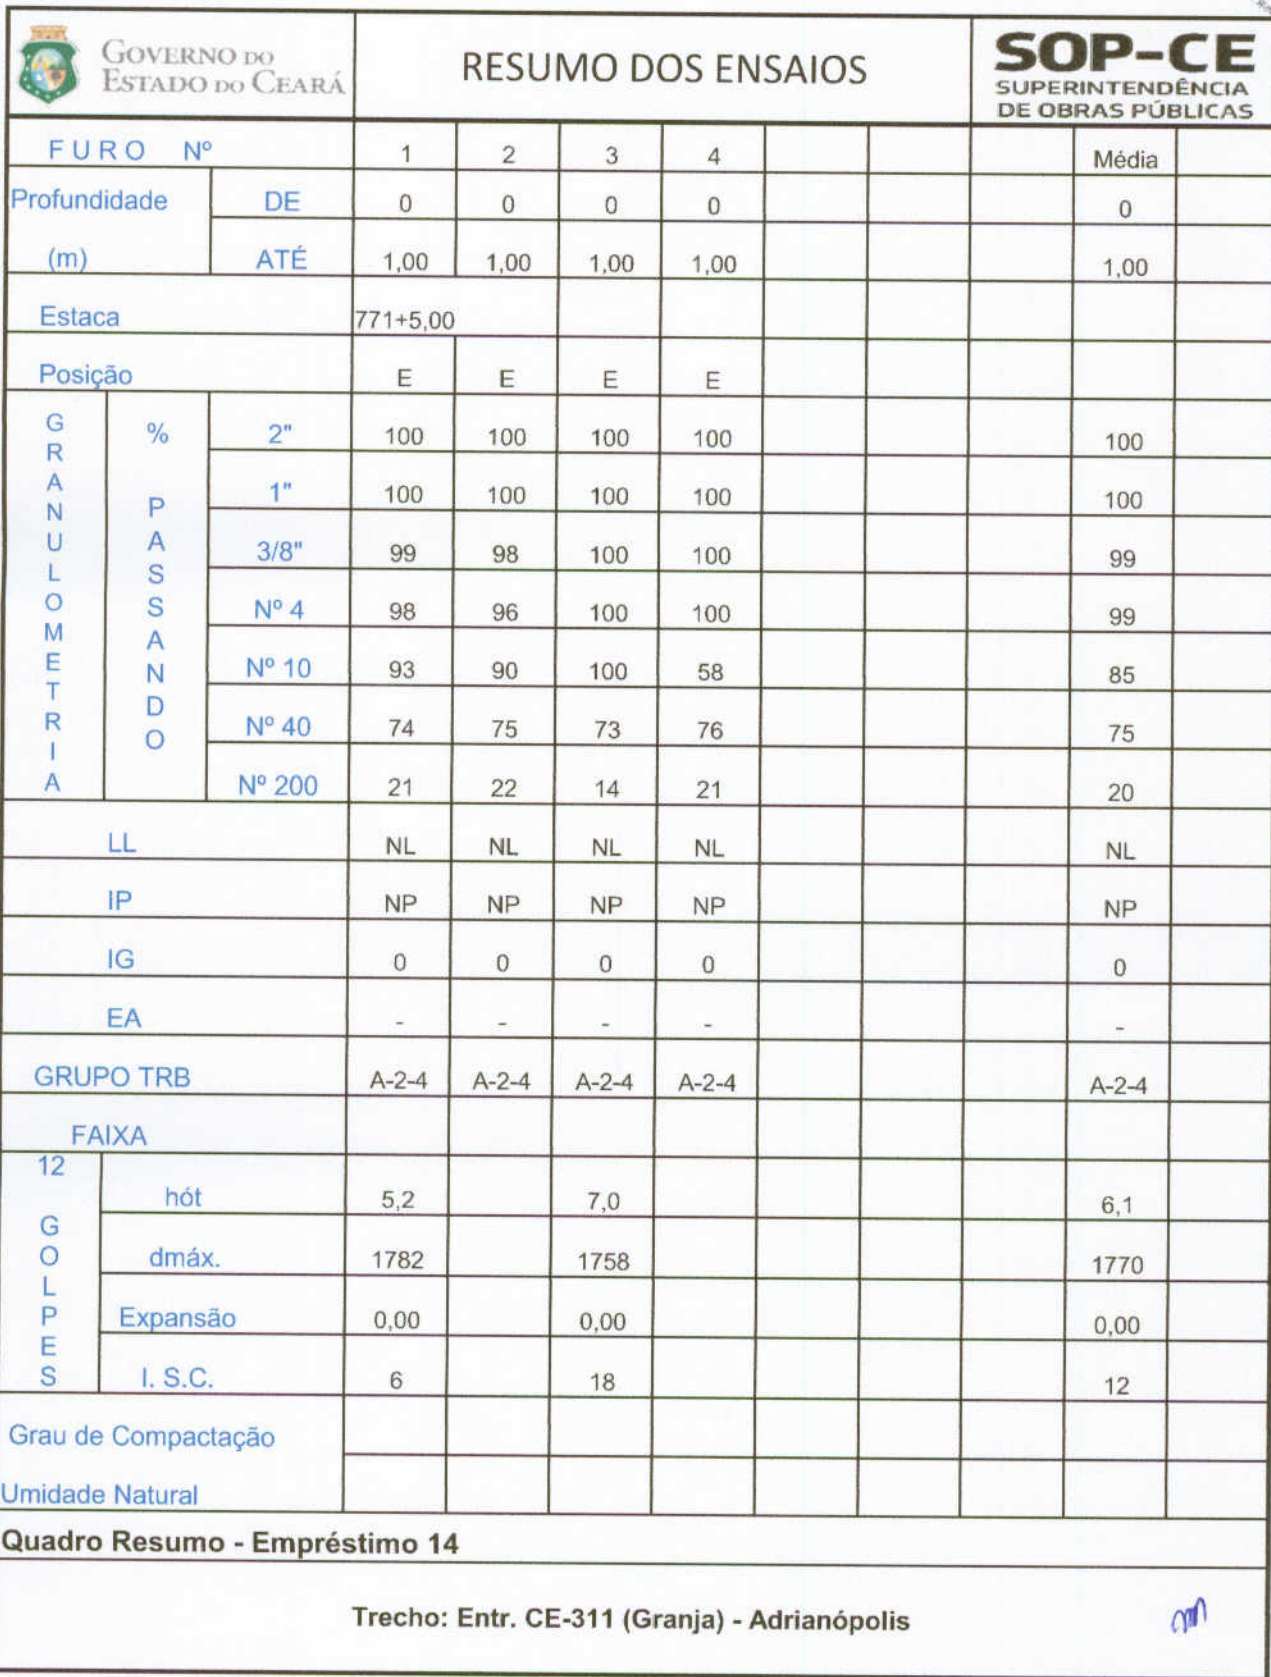 GOVERNO DO
ESTADO DO CEARÁ
RESUMO DOS ENSAIOS
SOP-CE
SUPERINTENDÊNCIA
DE OBRAS PÚBLICAS
FURO Nº 1 2 3 4 Média
Profundidade (m) DE 0 0 0 0 0
ATÉ 1,00 1,00 1,00 1,00 1,00
Estaca 771+5,00
Posição E E E E
GRANULOMETRIA
% PASSANDO
2" 100 100 100 100 100
1" 100 100 100 100 100
3/8" 99 98 100 100 99
Nº 4 98 96 100 100 99
Nº 10 93 90 100 58 85
Nº 40 74 75 73 76 75
Nº 200 21 22 14 21 20
LL NL NL NL NL NL
IP NP NP NP NP NP
IG 0 0 0 0 0
EA - - - - -
GRUPO TRB A-2-4 A-2-4 A-2-4 A-2-4 A-2-4
FAIXA
12 GOLPES
hót 5,2 7,0 6,1
dmáx. 1782 1758 1770
Expansão 0,00 0,00 0,00
I. S.C. 6 18 12
Grau de Compactação
Umidade Natural
Quadro Resumo - Empréstimo 14
Trecho: Entr. CE-311 (Granja) - Adrianópolis